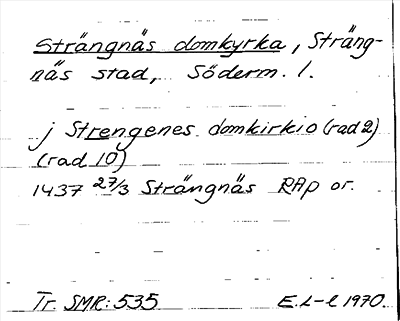 Strängnäs domkyrka, Sträng-
näs stad, Söderm. l.
j Strengenes domkirkio (rad 2)
(rad 10)
1437 27/3 Strängnäs RAp or.
Tr. SMR: 535 E. L-l 1970.